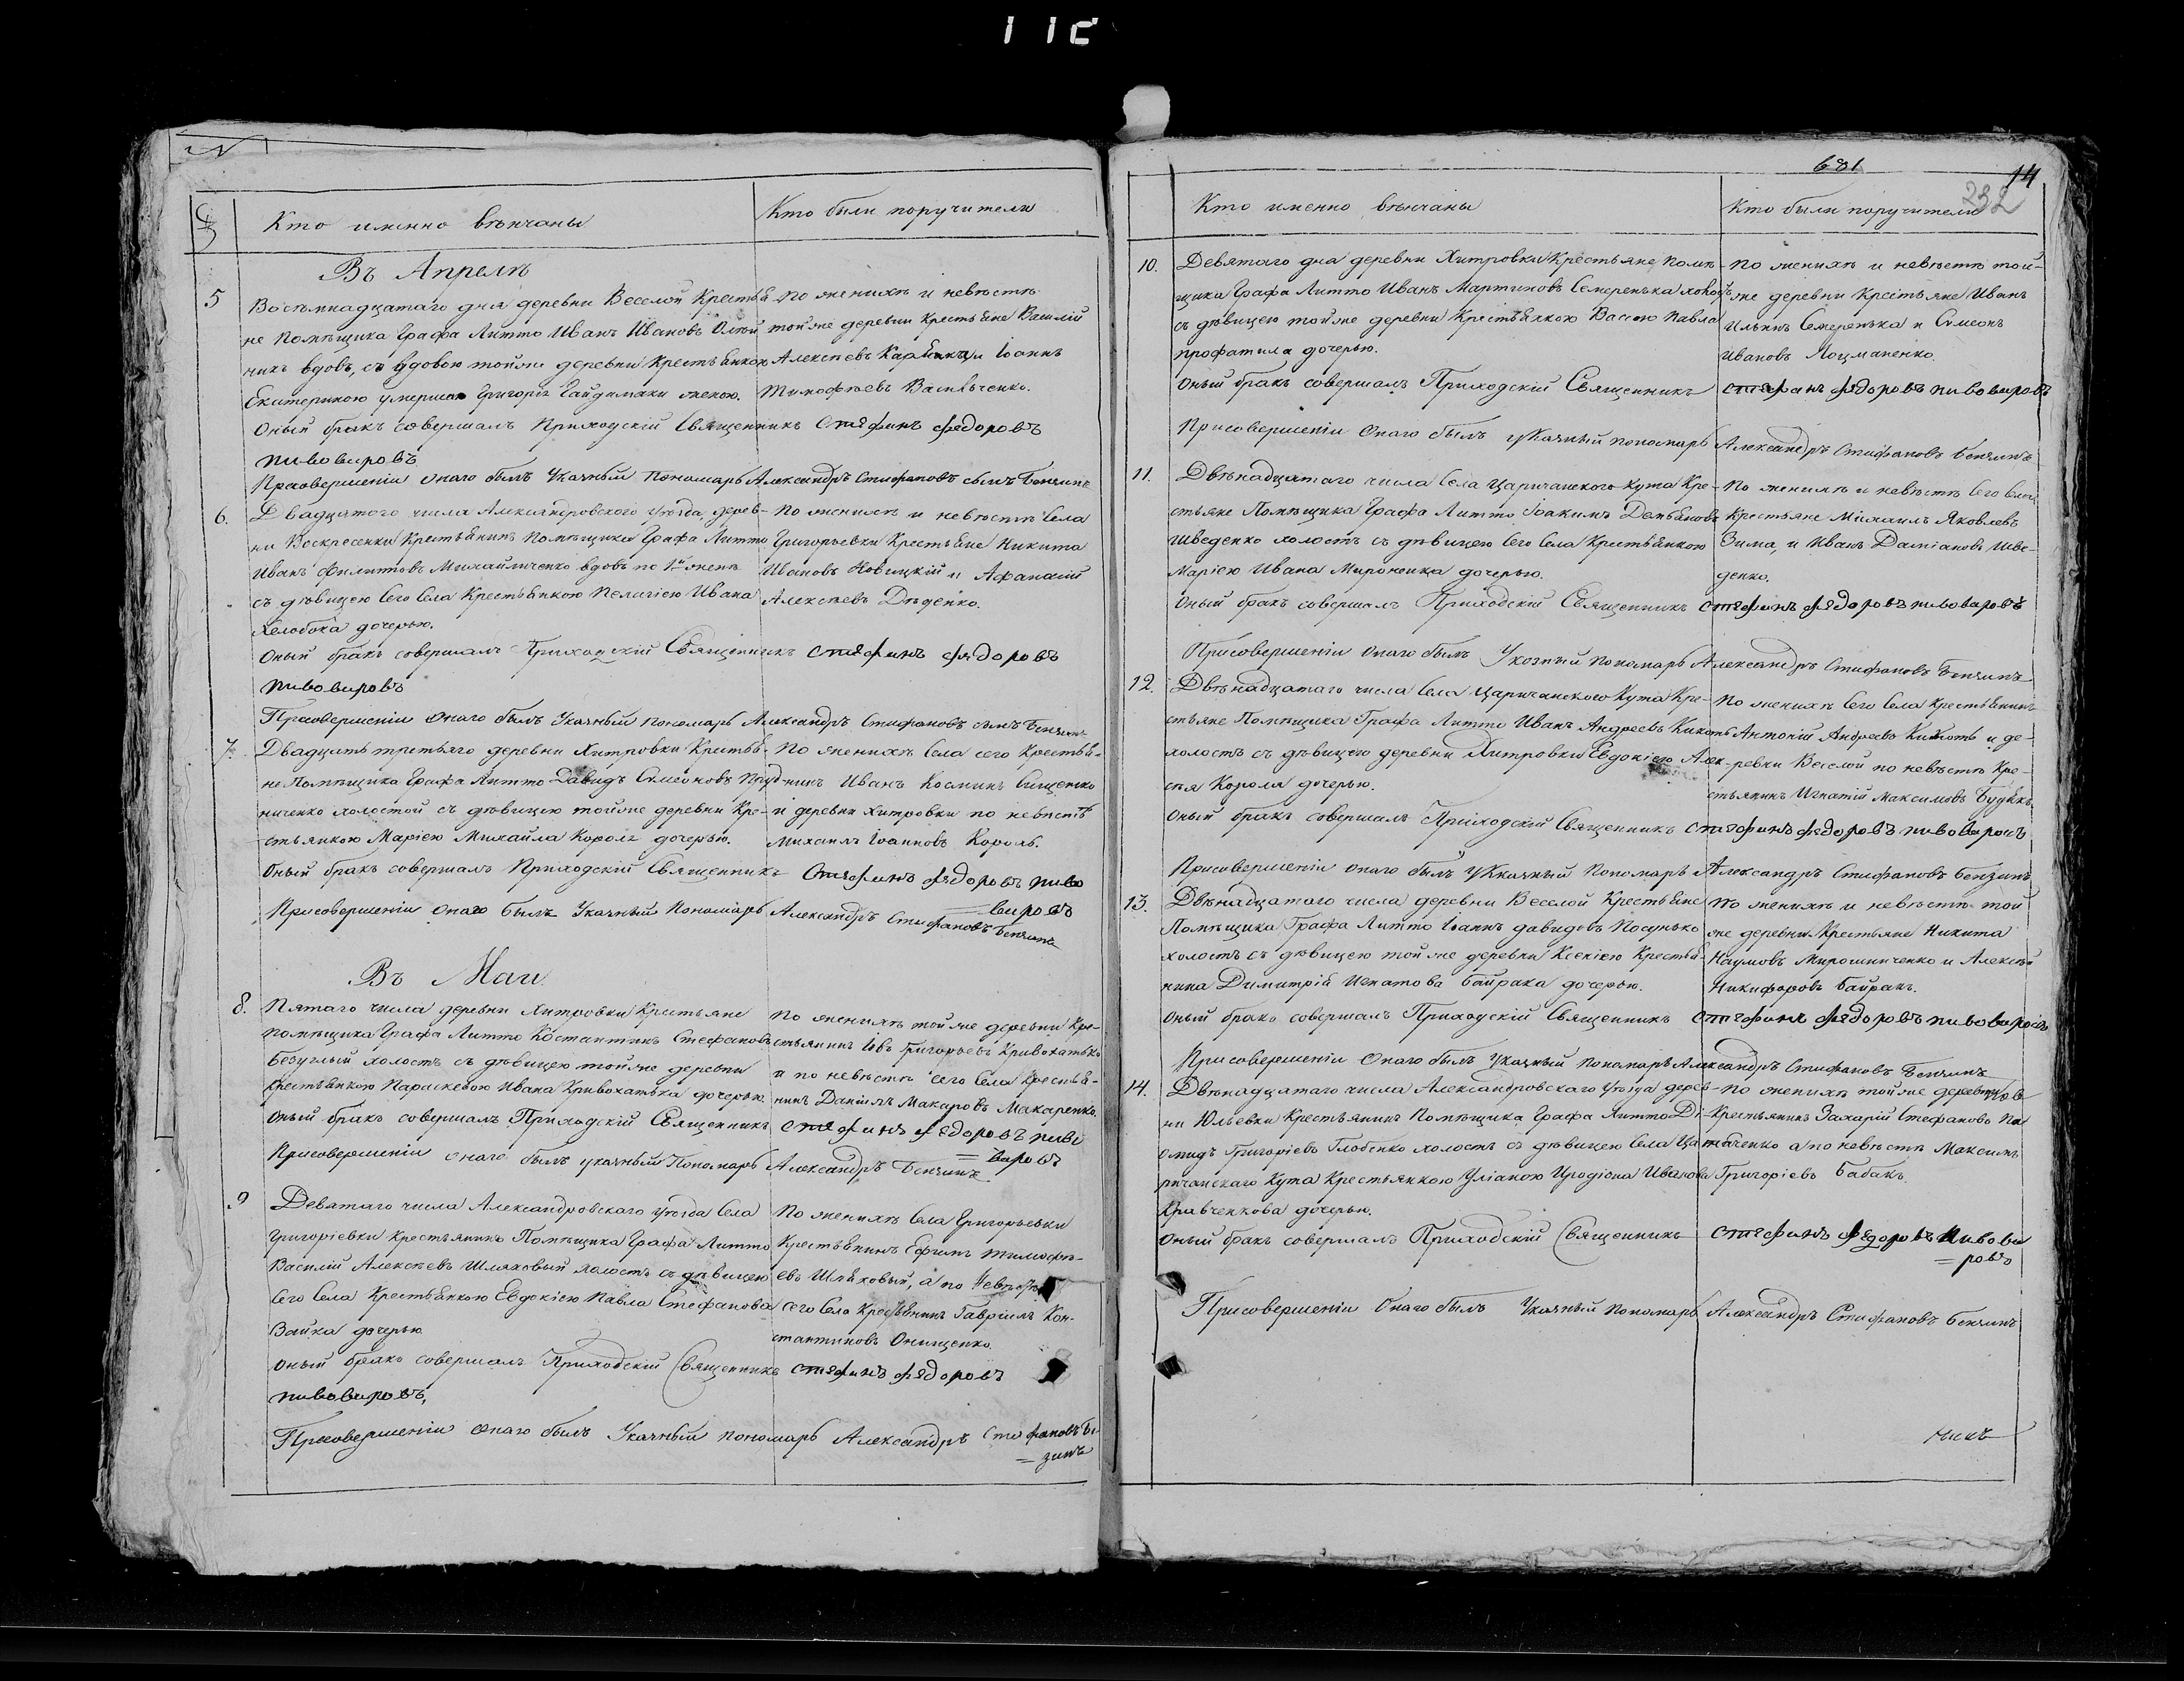 112
Кто именно вѣнчаны
Кто были поручители
Въ Апрелѣ
5
Восѣмнадцатаго дня деревни Веселой Крестья
не Помѣщика Графа Литто Иванъ Ивановъ Олѣй
никъ вдовъ, съ вдовою тойже деревни Крестьянкою
Екатериною умершаго Григорія Гайдамаки женою.
по женихѣ и невѣстѣ
тойже деревни Крестьяне Василій
Алексѣевъ и Іоаннъ
Тимофѣевъ Васильченко.
Оный бракъ совершалъ Приходскій Священникъ Стефанъ Федоровъ
пивоваровъ
Присовершеніи онаго былъ Указный Пономарь Александръ Стефановъ сынъ Бензинъ
6.
Двадцатого числа Александровского уѣзда дерев-
ни Воскресенки Крестьянинъ Помѣщика Графа Литто
Иванъ Филиповъ Михайличенко вдовъ по 1й женѣ
съ дѣвицею Сего Села Крестьянкою Пелагіею Ивана
Хелобока дочерью.
по женихѣ и невѣстѣ Села
Григорьевки Крестьяне Никита
Ивановъ Новицкій и Афанасій
Алексѣевъ Дѣденко.
Оный бракъ совершалъ Приходскій Священникъ Стефанъ Федоровъ
пивоваровъ
Присовершеніи онаго былъ Указный пономарь Александръ Стефановъ сынъ Бензинъ
7.
Двадцать третьяго деревни Хитровки Крестья-
не Помѣщика Графа Литто Давидъ Симеоновъ Пруд-
ниченко холостой съ дѣвицею тойже деревни Кре-
стьянкою Маріею Михайла Короля дочерью.
По женихѣ Села сего Крестья-
нинъ Иванъ Космина Сищенко
и деревни Хитровки по невѣстѣ
Михаилъ Іоанновъ Король.
Оный бракъ совершалъ Приходскій Священникъ Стефанъ Федоровъ пиво
=варовъ
Присовершеніи онаго былъ Указный Пономарь Александръ Стефановъ Бензинъ
Въ Маи
8.
Пятаго числа деревни Хитровки Крестьяне
помѣщика Графа Литто Костантинъ Стефановъ
Безуглый холостъ съ дѣвицею тойже деревни
Крестьянкою Параскевою Ивана Кривохатька дочерью.
По женихѣ тойже деревни Кре-
стьянинъ Іовъ Григорьевъ Кривохатько
и по невѣстѣ сего Села Крестья-
нинъ Даніилъ Макаровъ Макаренко.
Оный бракъ совершалъ Приходскій Священникъ Стефанъ Федоровъ пиво
=варовъ
Присовершеніи онаго былъ указный Пономарь Александръ Бензинъ
9
Девятаго числа Александровского уѣзда Села
Григоріевки Крестьянинъ Помѣщика Графа Литто
Василій Алексѣевъ Шляховый холостъ съ дѣвицею
Сего Села Крестьянкою Евдокіею Павла Стефанова
Зайка дочерью
По женихѣ Села Григорьевки
Крестьянинъ Ефимъ Тимофѣ-
евъ Шляховый, а по Невѣстѣ
сего Села Крестьянинъ Гавріилъ Кон-
стантиновъ Онищенко.
Оный бракъ совершалъ Приходскій Священникъ Стефанъ Федоровъ
пивоваровъ,
Присовершеніи онаго былъ Указный пономарь Александръ Стефановъ Бе
=зинъ
681
14
232
Кто именно вѣнчаны
Кто были поручители
10.
Девятаго дня деревни Хитровки Крестьяне Помѣ
щика Графа Литто Иванъ Мартиновъ Семеренька холостъ
съ дѣвицею тойже деревни Крестьянкою Вассою Павла
профатила дочерью.
по женихѣ и невѣстѣ той-
же деревни Крестьяне Иванъ
Ильинъ Семеренька и Симеонъ
Ивановъ Лоцманенко.
Оный бракъ совершалъ Приходскій Священникъ Стефанъ Федоровъ пивоваровъ
Присовершеніи Онаго былъ указный пономарь Александръ Стефановъ Бензинъ
11.
Двѣнадцатаго числа Села Царичанского Кута Кре-
стьяне Помѣщика Графа Литто Іоакимъ Демьяновъ
Шведенко холостъ съ дѣвицею Сего Села Крестьянкою
Маріею Ивана Мироненка дочерью.
По женихѣ и невѣстѣ Сего Села
Крестьяне Михаилъ Яковлевъ
Зима, и Иванъ Даміановъ Шве-
денко.
Оный бракъ совершалъ Приходскій Священникъ Стефанъ Федоровъ пивоваровъ
Присовершеніи онаго былъ Указный пономарь Александръ Стефановъ Бензинъ
12.
Двѣнадцатаго числа Села Царичанского Кута Кре-
стьяне Помѣщика Графа Литто Иванъ Андреевъ Кихоть
холостъ съ дѣвицею деревни Хитровки Евдокіею Алек-
сѣя Короля дочерью.
По женихѣ Сего Села Крестьянинъ
Антоній Андреевъ Кихоть и де-
ревни Веселой по невѣстѣ Кре-
стьянинъ Игнатій Максимовъ
Оный бракъ совершалъ Приходскій Священникъ Стефанъ Федоровъ пивоваровъ
Присовершеніи онаго былъ Указный Пономарь Александръ Стефановъ Бензинъ
13.
Двѣнадцатаго числа деревни Веселой Крестьяне
Помѣщика Графа Литто Іоаннъ Давидовъ Посунько
холостъ съ дѣвицею тойже деревни Ксеніею Крестья-
нина Димитрія Игнатова Байрака дочерью.
По женихѣ и невѣстѣ той
же деревни Крестьяне Никита
Наумовъ Мирошниченко и Алексѣй
Никифоровъ Байракъ.
Оный бракъ совершалъ Приходскій Священникъ Стефанъ Федоровъ пивоваровъ
Присовершеніи Онаго былъ Указный пономарь Александръ Стефановъ Бензинъ
14.
Двѣнадцатаго числа Александровскаго уѣзда дерев-
ни Юльевки Крестьянинъ Помѣщика Графа Литто Ді-
омидъ Григоріевъ Глобенко холостъ съ дѣвицею Села Ца-
ричанскаго Кута Крестьянкою Уліаною Иродіона Иванова
Кравченкова дочерью.
по женихѣ тойже деревни
Крестьянинъ Захарій Стефановъ
а по невѣстѣ Максимъ
Григоріевъ Бабакъ.
Оный бракъ совершалъ Приходскій Священникъ Стефанъ Федоровъ Пивова
=ровъ
Присовершеніи Онаго былъ Указный пономарь Александръ Стефановъ Бензинъ